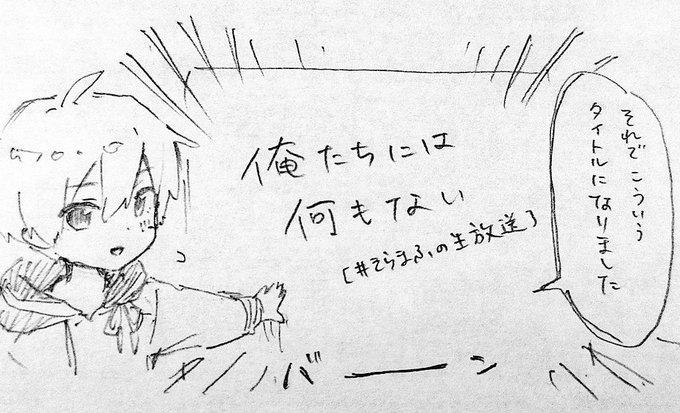 それで こういう
タイトルになりました
俺たちには
何もない
[#そらまふの生放送]
バーン